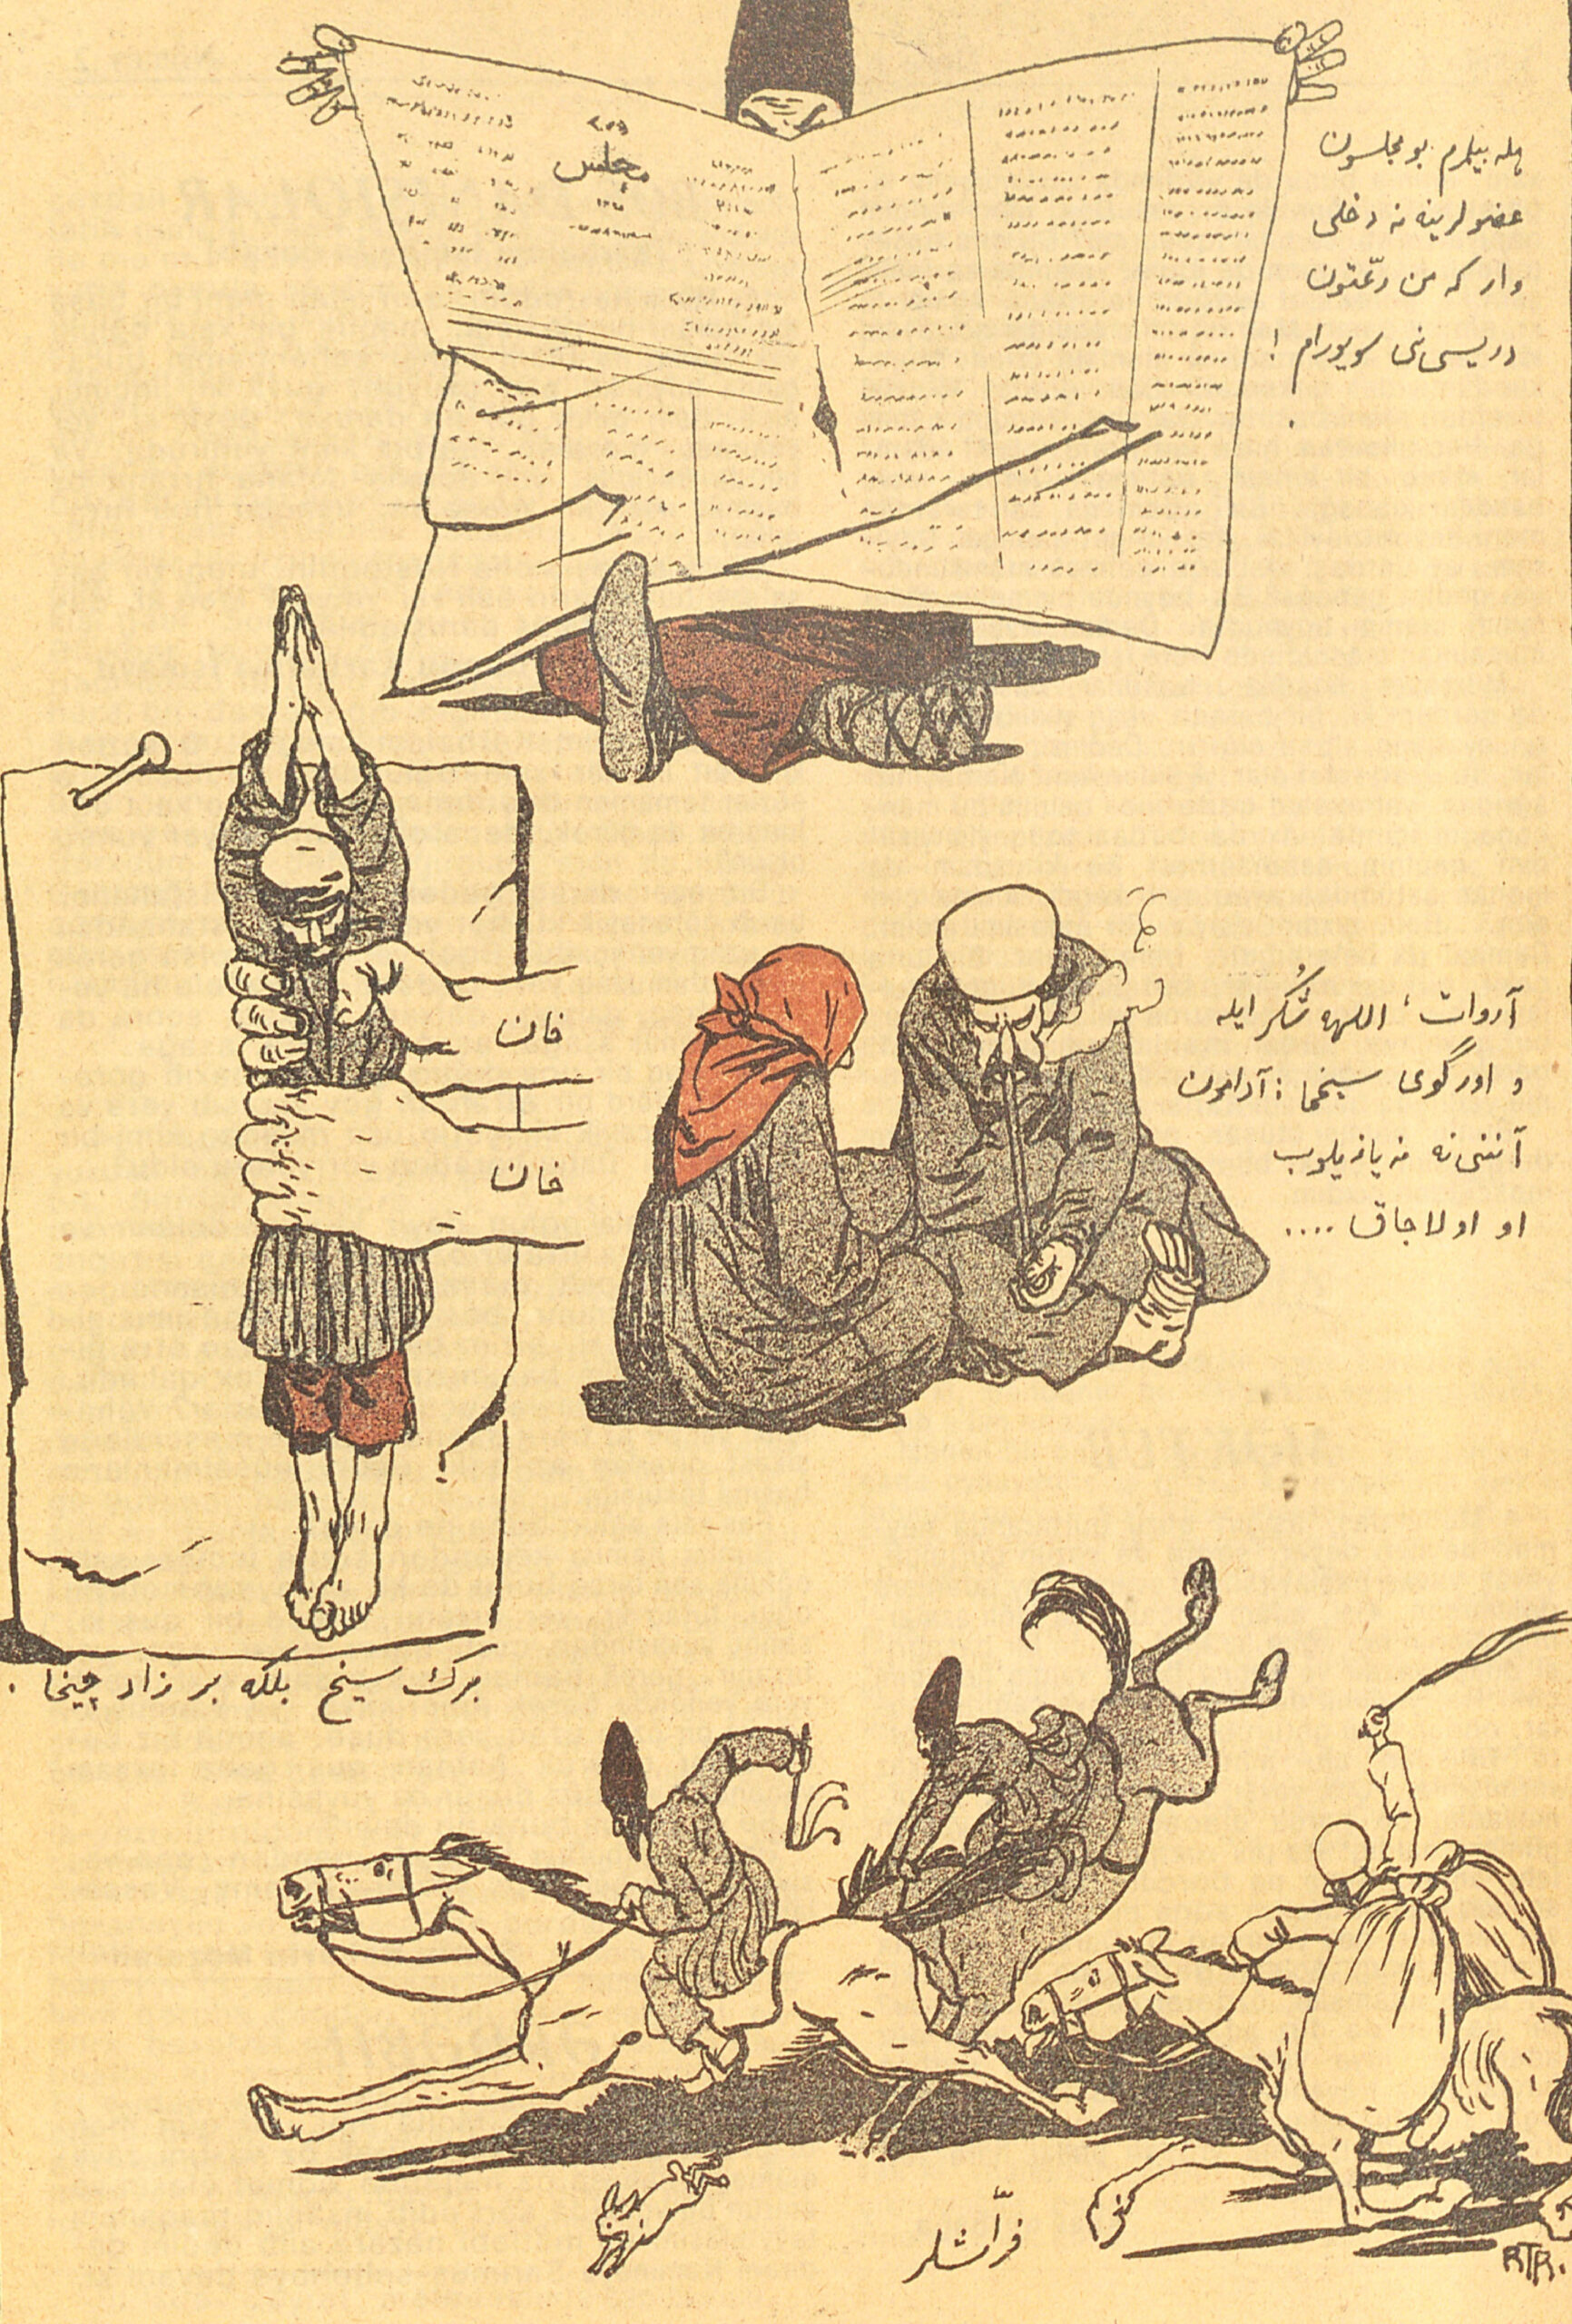 مجلس
هله بیلمرم بو مجلسون
عضولرینه نه دخلی
وار که من رعیّتون
دریسی‌نی سویورام !
خان
خان
برک سیخ بلکه بر زاد چیخا .
آروات، اللهه شُکر ایله
و اورگوی سیخما : آدامون
آننی‌نه نه یازیلوب
او اولاجاق ....
فرّاشلر
RTR.